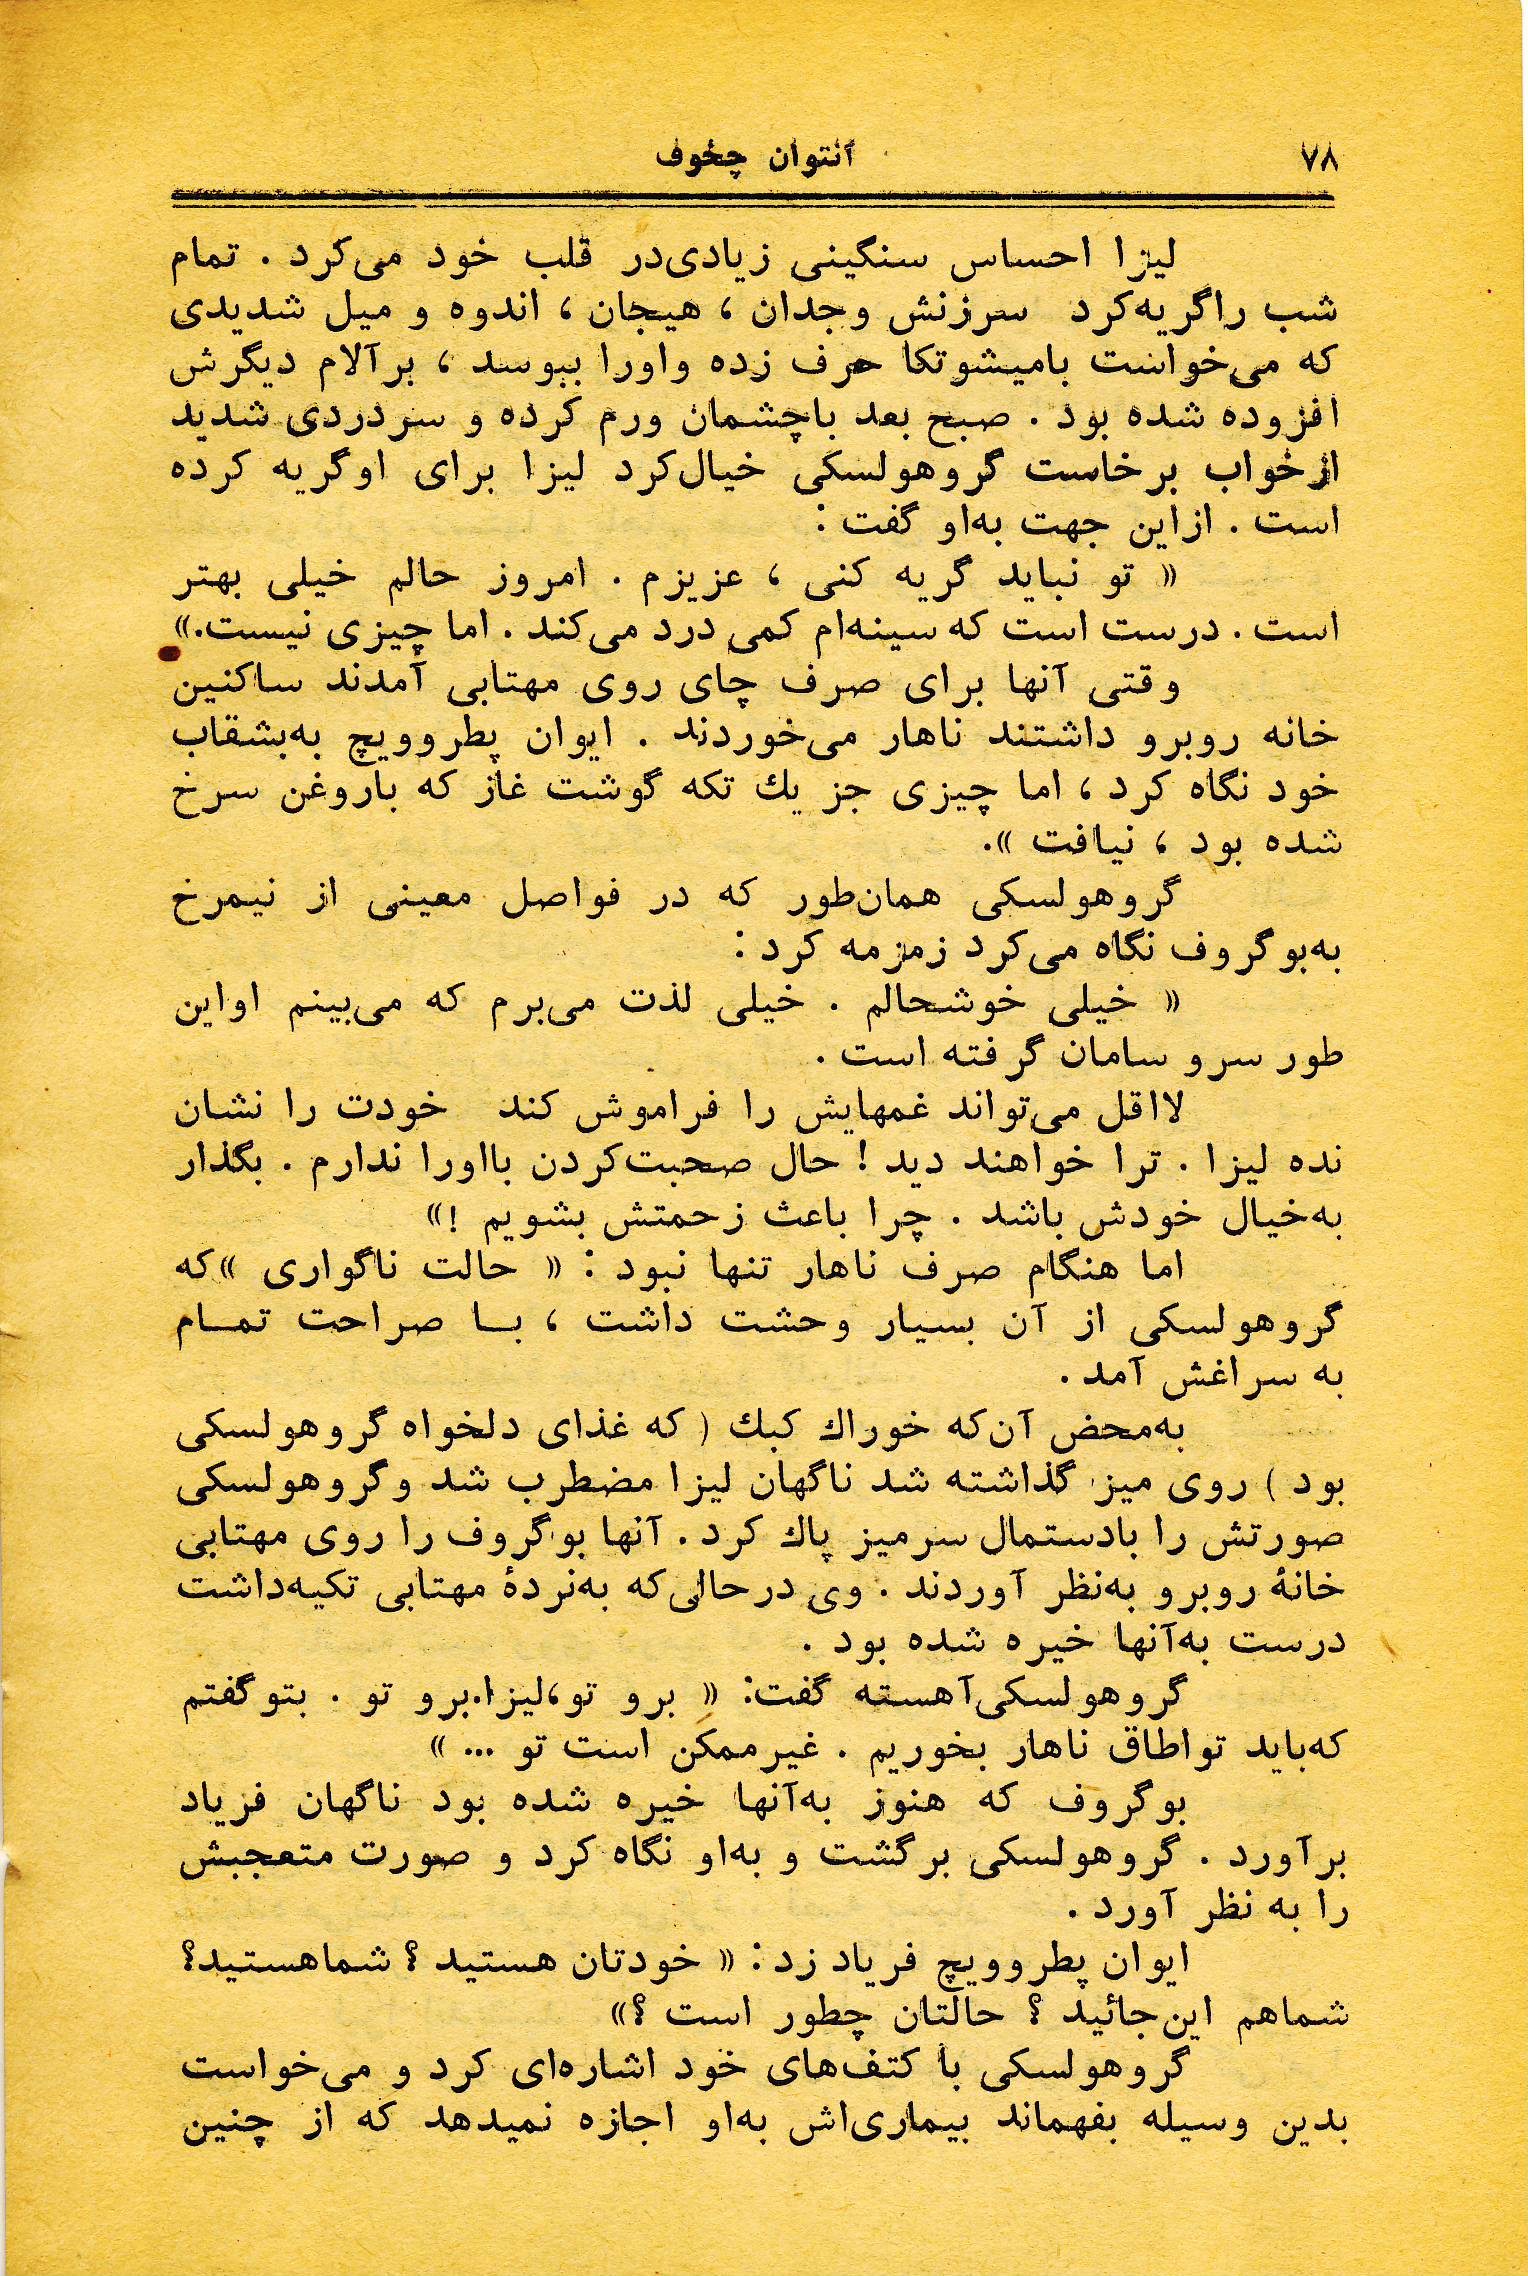 ۷۸
آنتوان چخوف
لیزا احساس سنگینی زیادی‌در قلب خود می‌کرد . تمام
شب راگریه‌کرد سرزنش وجدان ، هیجان ، اندوه و میل شدیدی
که می‌خواست بامیشوتکا حرف زده واورا ببوسد ، برآلام دیگرش
افزوده شده بود . صبح بعد باچشمان ورم کرده و سردردی شدید
ازخواب برخاست گروهولسکی خیال‌کرد لیزا برای اوگریه کرده
است . ازاین جهت به‌او گفت :
« تو نباید گریه کنی ، عزیزم . امروز حالم خیلی بهتر
است . درست است که سینه‌ام کمی درد می‌کند . اما چیزی نیست.»
وقتی آنها برای صرف چای روی مهتابی آمدند ساکنین
خانه روبرو داشتند ناهار می‌خوردند . ایوان پطروویچ به‌بشقاب
خود نگاه کرد ، اما چیزی جز یك تکه گوشت غاز که باروغن سرخ
شده بود ، نیافت ».
گروهولسکی همان‌طور که در فواصل معینی از نیمرخ
به‌بوگروف نگاه می‌کرد زمزمه کرد :
« خیلی خوشحالم . خیلی لذت می‌برم که می‌بینم اواین
طور سرو سامان گرفته است .
لااقل می‌تواند غمهایش را فراموش کند خودت را نشان
نده لیزا . ترا خواهند دید ! حال صحبت‌کردن بااورا ندارم . بگذار
به‌خیال خودش باشد . چرا باعث زحمتش بشویم !»
اما هنگام صرف ناهار تنها نبود : « حالت ناگواری »که
گروهولسکی از آن بسیار وحشت داشت ، بـا صراحت تمـام
به سراغش آمد .
به‌محض آن‌که خوراك كبك ( که غذای دلخواه گروهولسکی
بود ) روی میز گذاشته شد ناگهان لیزا مضطرب شد وگروهولسکی
صورتش را بادستمال سرمیز پاك کرد . آنها بوگروف را روی مهتابی
خانهٔ روبرو به‌نظر آوردند . وی درحالی‌که به‌نردهٔ مهتابی تکیه‌داشت
درست به‌آنها خیره شده بود .
گروهولسکی‌آهسته گفت: « برو تو،لیزا.برو تو . بتوگفتم
که‌باید تواطاق ناهار بخوریم . غیرممکن است تو ... »
بوگروف که هنوز به‌آنها خیره شده بود ناگهان فریاد
برآورد . گروهولسکی برگشت و به‌او نگاه کرد و صورت متعجبش
را به نظر آورد .
ایوان پطروویچ فریاد زد : « خودتان هستید ؟ شماهستید؟
شماهم این‌جائید ؟ حالتان چطور است ؟»
گروهولسکی با کتف‌های خود اشاره‌ای کرد و می‌خواست
بدین وسیله بفهماند بیماری‌اش به‌او اجازه نمیدهد که از چنین